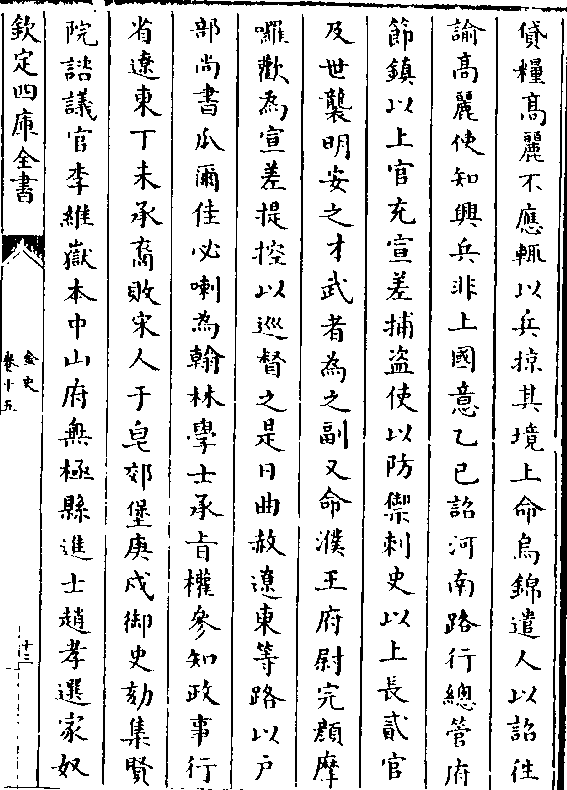 貸糧高麗不應輒以兵掠其境上命烏錦遣人以詔往
諭高麗使知興兵非上國意乙巳詔河南路行總管府
節鎮以上官充宣差捕盜使以防禦刺史以上長貳官
及世襲明安之才武者為之副又命濮王府尉完顔摩
囉歡為宣差提控以巡督之是日曲赦遼東等路以户
部尚書瓜爾佳必喇為翰林學士承旨權參知政事行
省遼東丁未承裔敗宋人于皂郊堡庚戌御史劾集賢
院諮議官李維嶽本中山府無極縣進士趙孝選家奴
欽定四庫全書
金史
卷十五
十三